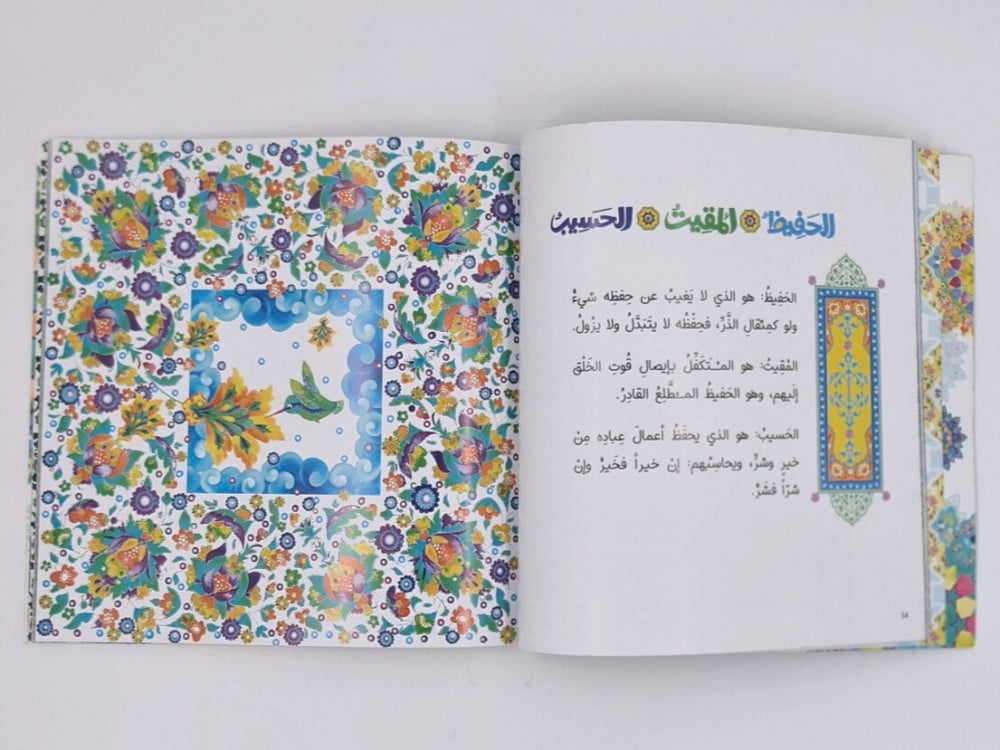 الحَفِيظُ المُقِيتُ الحَسِيبُ
الحَفِيظُ: هو الذي لا يَغيبُ عن حِفظِه شَيءٌ
ولو كمِثقالِ الذَّرِّ، فحِفْظُه لا يتَبَدَّلُ ولا يزُولُ.
المُقِيتُ: هو المـُتَكَفِّلُ بإيصالِ قُوتِ الخَلْقِ
إلَيهِم، وهو الحَفيظُ المـُطَّلِعُ القادِرُ.
الحَسيبُ: هو الذي يحفَظُ أعمالَ عِبادِه مِنْ
خيرٍ وشَرٍّ، ويحاسِبُهم: إنْ خيراً فَخَيرٌ وإنْ
شَرّاً فَشَرٌّ.
34